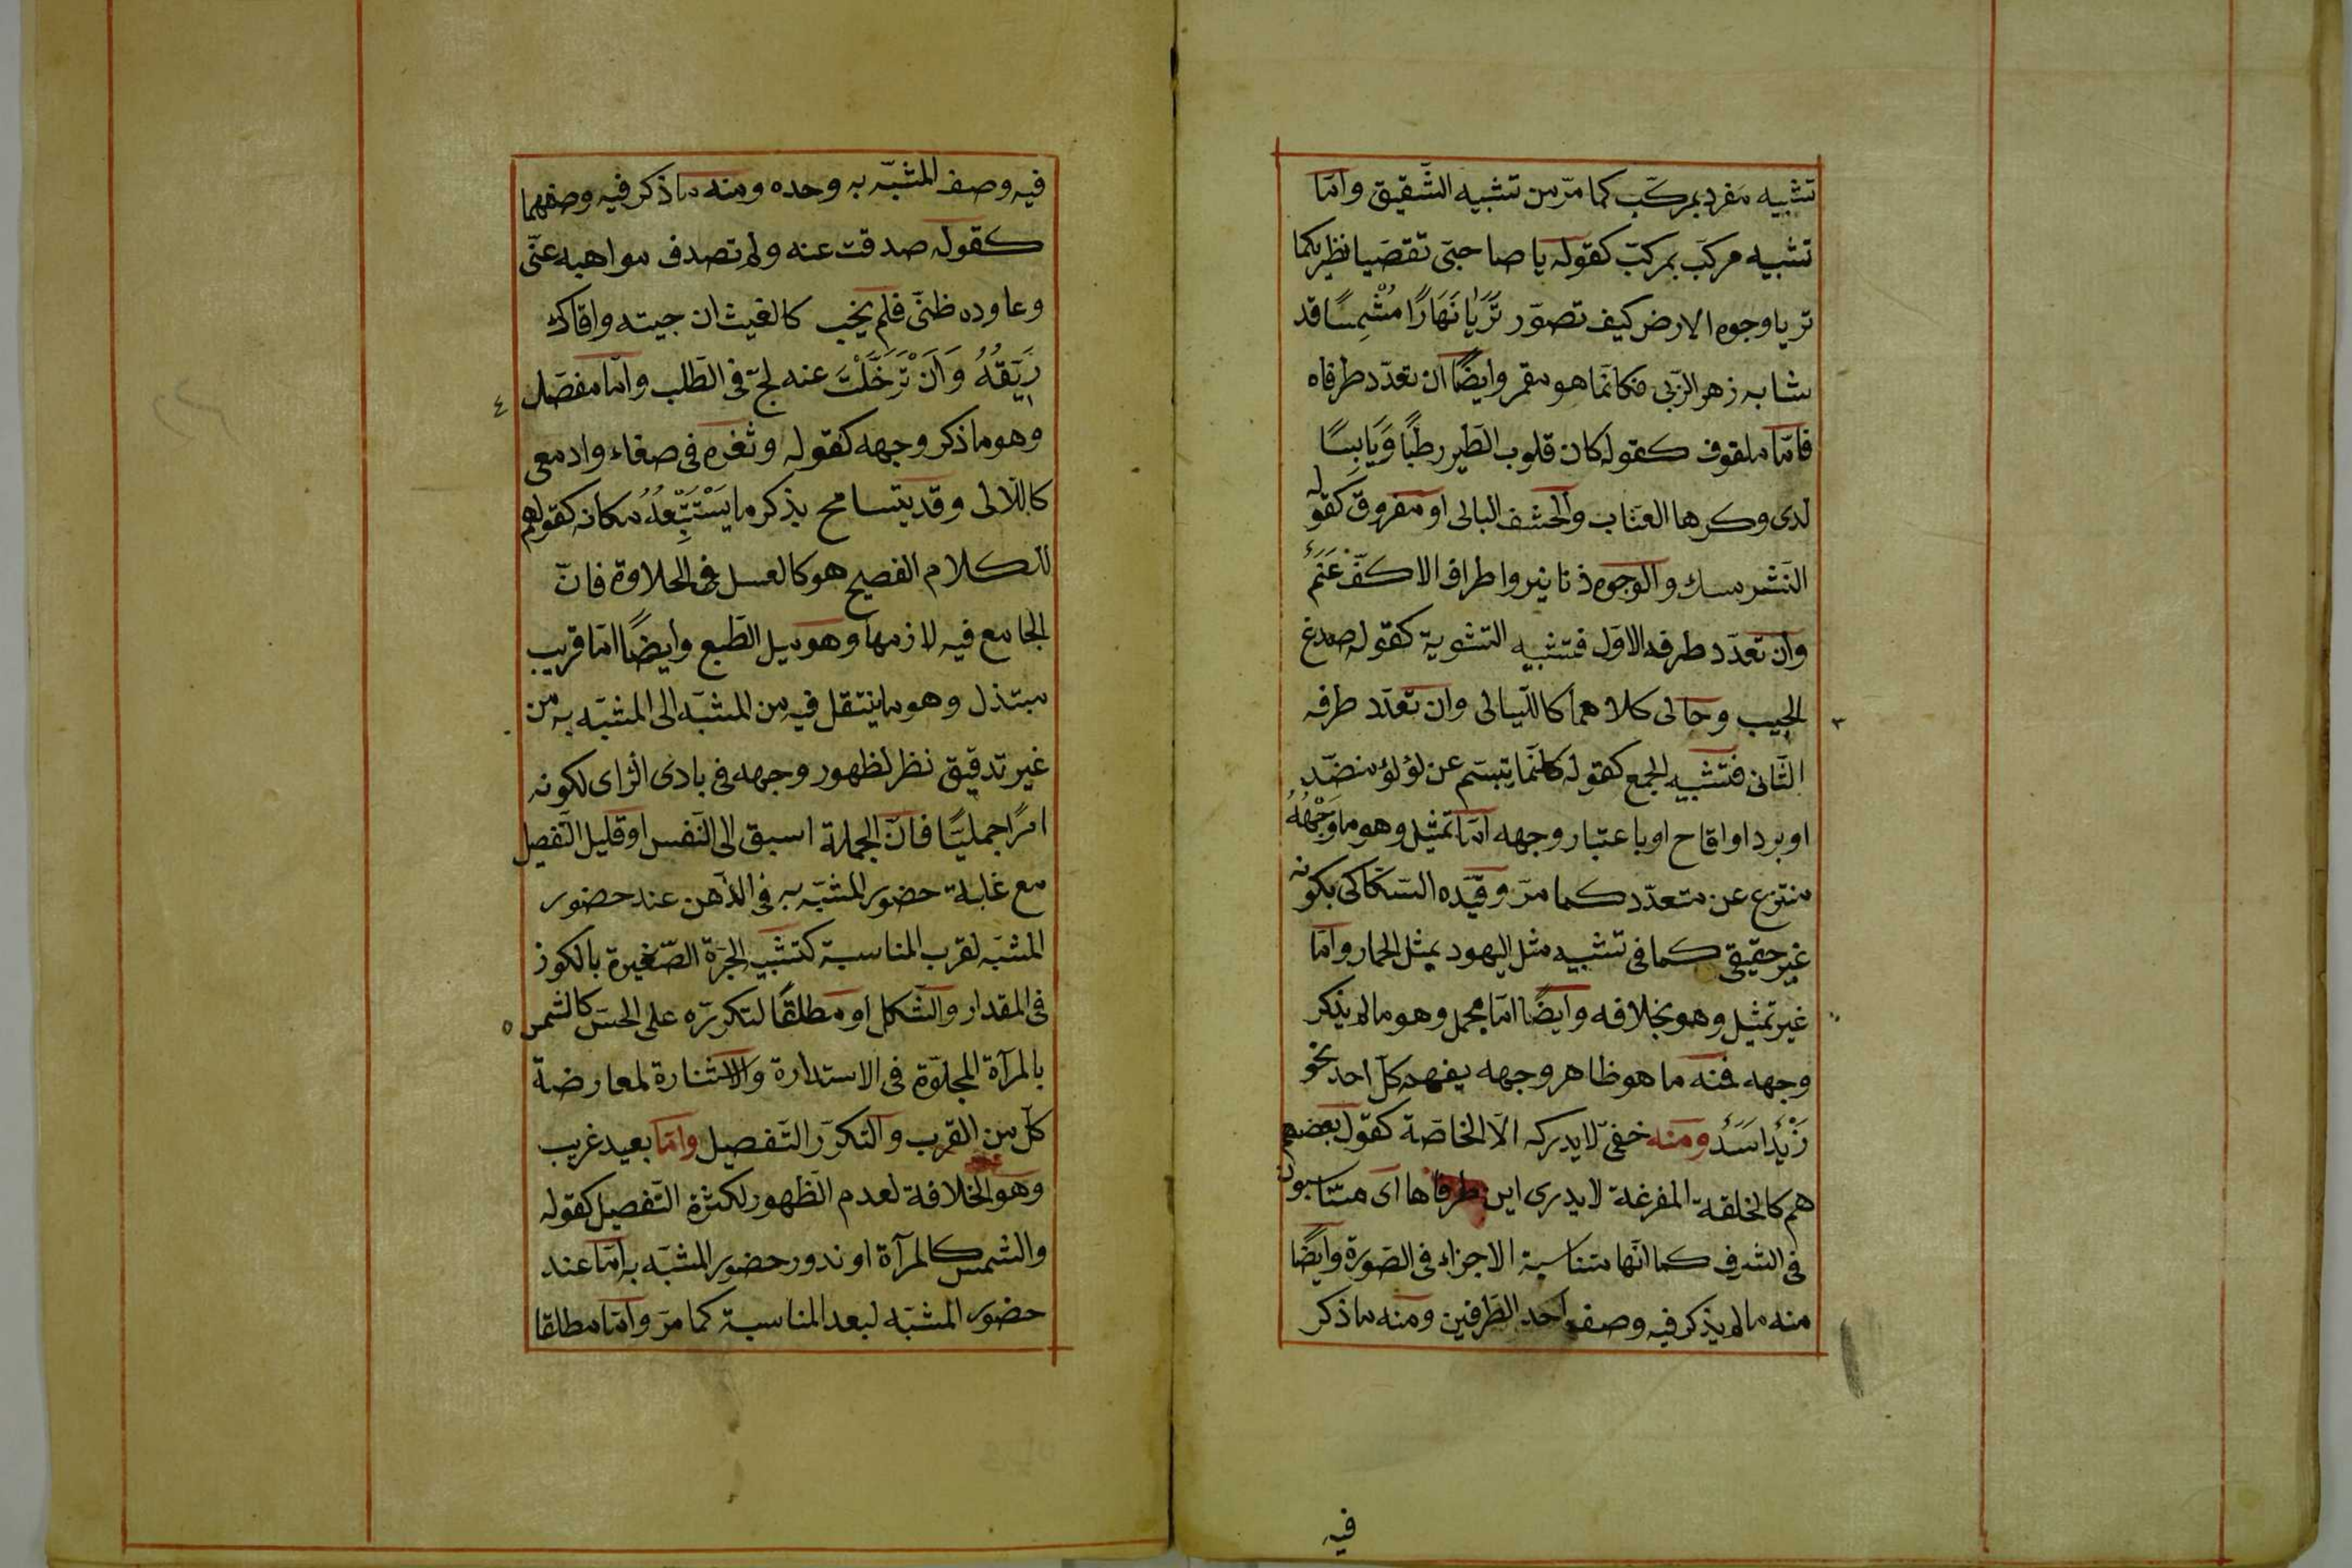 تشبيه مفرد بمركّب كما مرّ من تشبيه الشّقيق وامّا
تشبيه مركّب بمركّب كقوله يا صاحبىّ تقصّيا نظريكما
تريا وجوه الارض كيف تصوّر تَرَيا نَهَارًا مُشْمِسًا قد
شابه زهر الرّبى فكانّما هو مقمر وايضًا ان تعدّد طرفاه
فامّا ملفوف كقوله كان قلوب الطّير رطبًا وَيَابِسًا
لدى وكرها العنّاب والحشف البالى او مفروق كقوله
النّشر مسك والوجوه دنانير واطراف الاكفّ عَنَمٌ
وان تعدّد طرفه الاوّل فتشبيه التّسوية كقوله صدغ
الحبيب وحالى كلاهما كاللّيالى وان تعدّد طرفه
الثّانى فتشبيه الجمع كقوله كانّما يتبسّم عن لؤلؤ منضّد
او برد او اقاح او باعتبار وجهه امّا تمثيل وهو ما وَجْهُهُ
منتزع عن متعدّد كما مرّ وقيّده السّكاكى بكونه
غير حقيقىّ كما فى تشبيه مثل اليهود بمثل الحمار وامّا
غير تمثيل وهو بخلافه وايضًا امّا مجمل وهو ما لم يذكر
وجهه فمنه ما هو ظاهر وجهه يفهمه كلّ احد نحو
زَيْدٌ اسَدٌ ومنه خفىّ لا يدركه الّا الخاصّة كقول بعضهم
هم كالحلقة المفرغة لا يدرى اين طرفاها اى متناسبون
فى الشرف كما انّها متناسبة الاجزاء فى الصّورة وايضًا
منه ما لم يذكر فيه وصف احد الطّرفين ومنه ما ذكر
فيه
فيه وصف المشبّه به وحده ومنه ما ذكر فيه وصفهما
كقوله صدفت عنه ولم تصدف مواهبه عنّى
وعاوده ظنّى فلم يخب كالغيث ان جيته وافاك
رَيِّقُهُ وَاَنْ تَرَحَّلْتَ عنه لجّ فى الطّلب وامّا مفصّل
وهو ما ذكر وجهه كقوله وثغره فى صفاء وادمعى
كاللّالى وقد يتسامح بذكر ما يَسْتَتْبِعُهُ مكانه كقولهم
للكلام الفصيح هو كالعسل فى الحلاوة فانّ
الجامع فيه لازمها وهو ميل الطّبع وايضًا امّا قريب
مبتذل وهو ما ينتقل فيه من المشبّه الى المشبّه به من
غير تدقيق نظر لظهور وجهه فى بادى الرّاى لكونه
امرًا جمليّا فانّ الجملة اسبق الى النّفس او قليل التّفصيل
مع غلبة حضور المشبّه به فى الذّهن عند حضور
المشبّه لقرب المناسبة كتشبيه الجرّة الصّغيرة بالكوز
فى المقدار والشّكل او مطلقًا لتكرّره على الحسّ كالشمس
بالمرآة المجلوّة فى الاستدارة والاستنارة لمعارضة
كلّ من القرب والتكرّر التّفصيل وامّا بعيد غريب
وهو الخلافة لعدم الظهور لكثرة التّفصيل كقوله
والشمس كالمرآة او ندور حضور المشبّه به امّا عند
حضور المشبّه لبعد المناسبة كما مرّ وامّا مطلقا